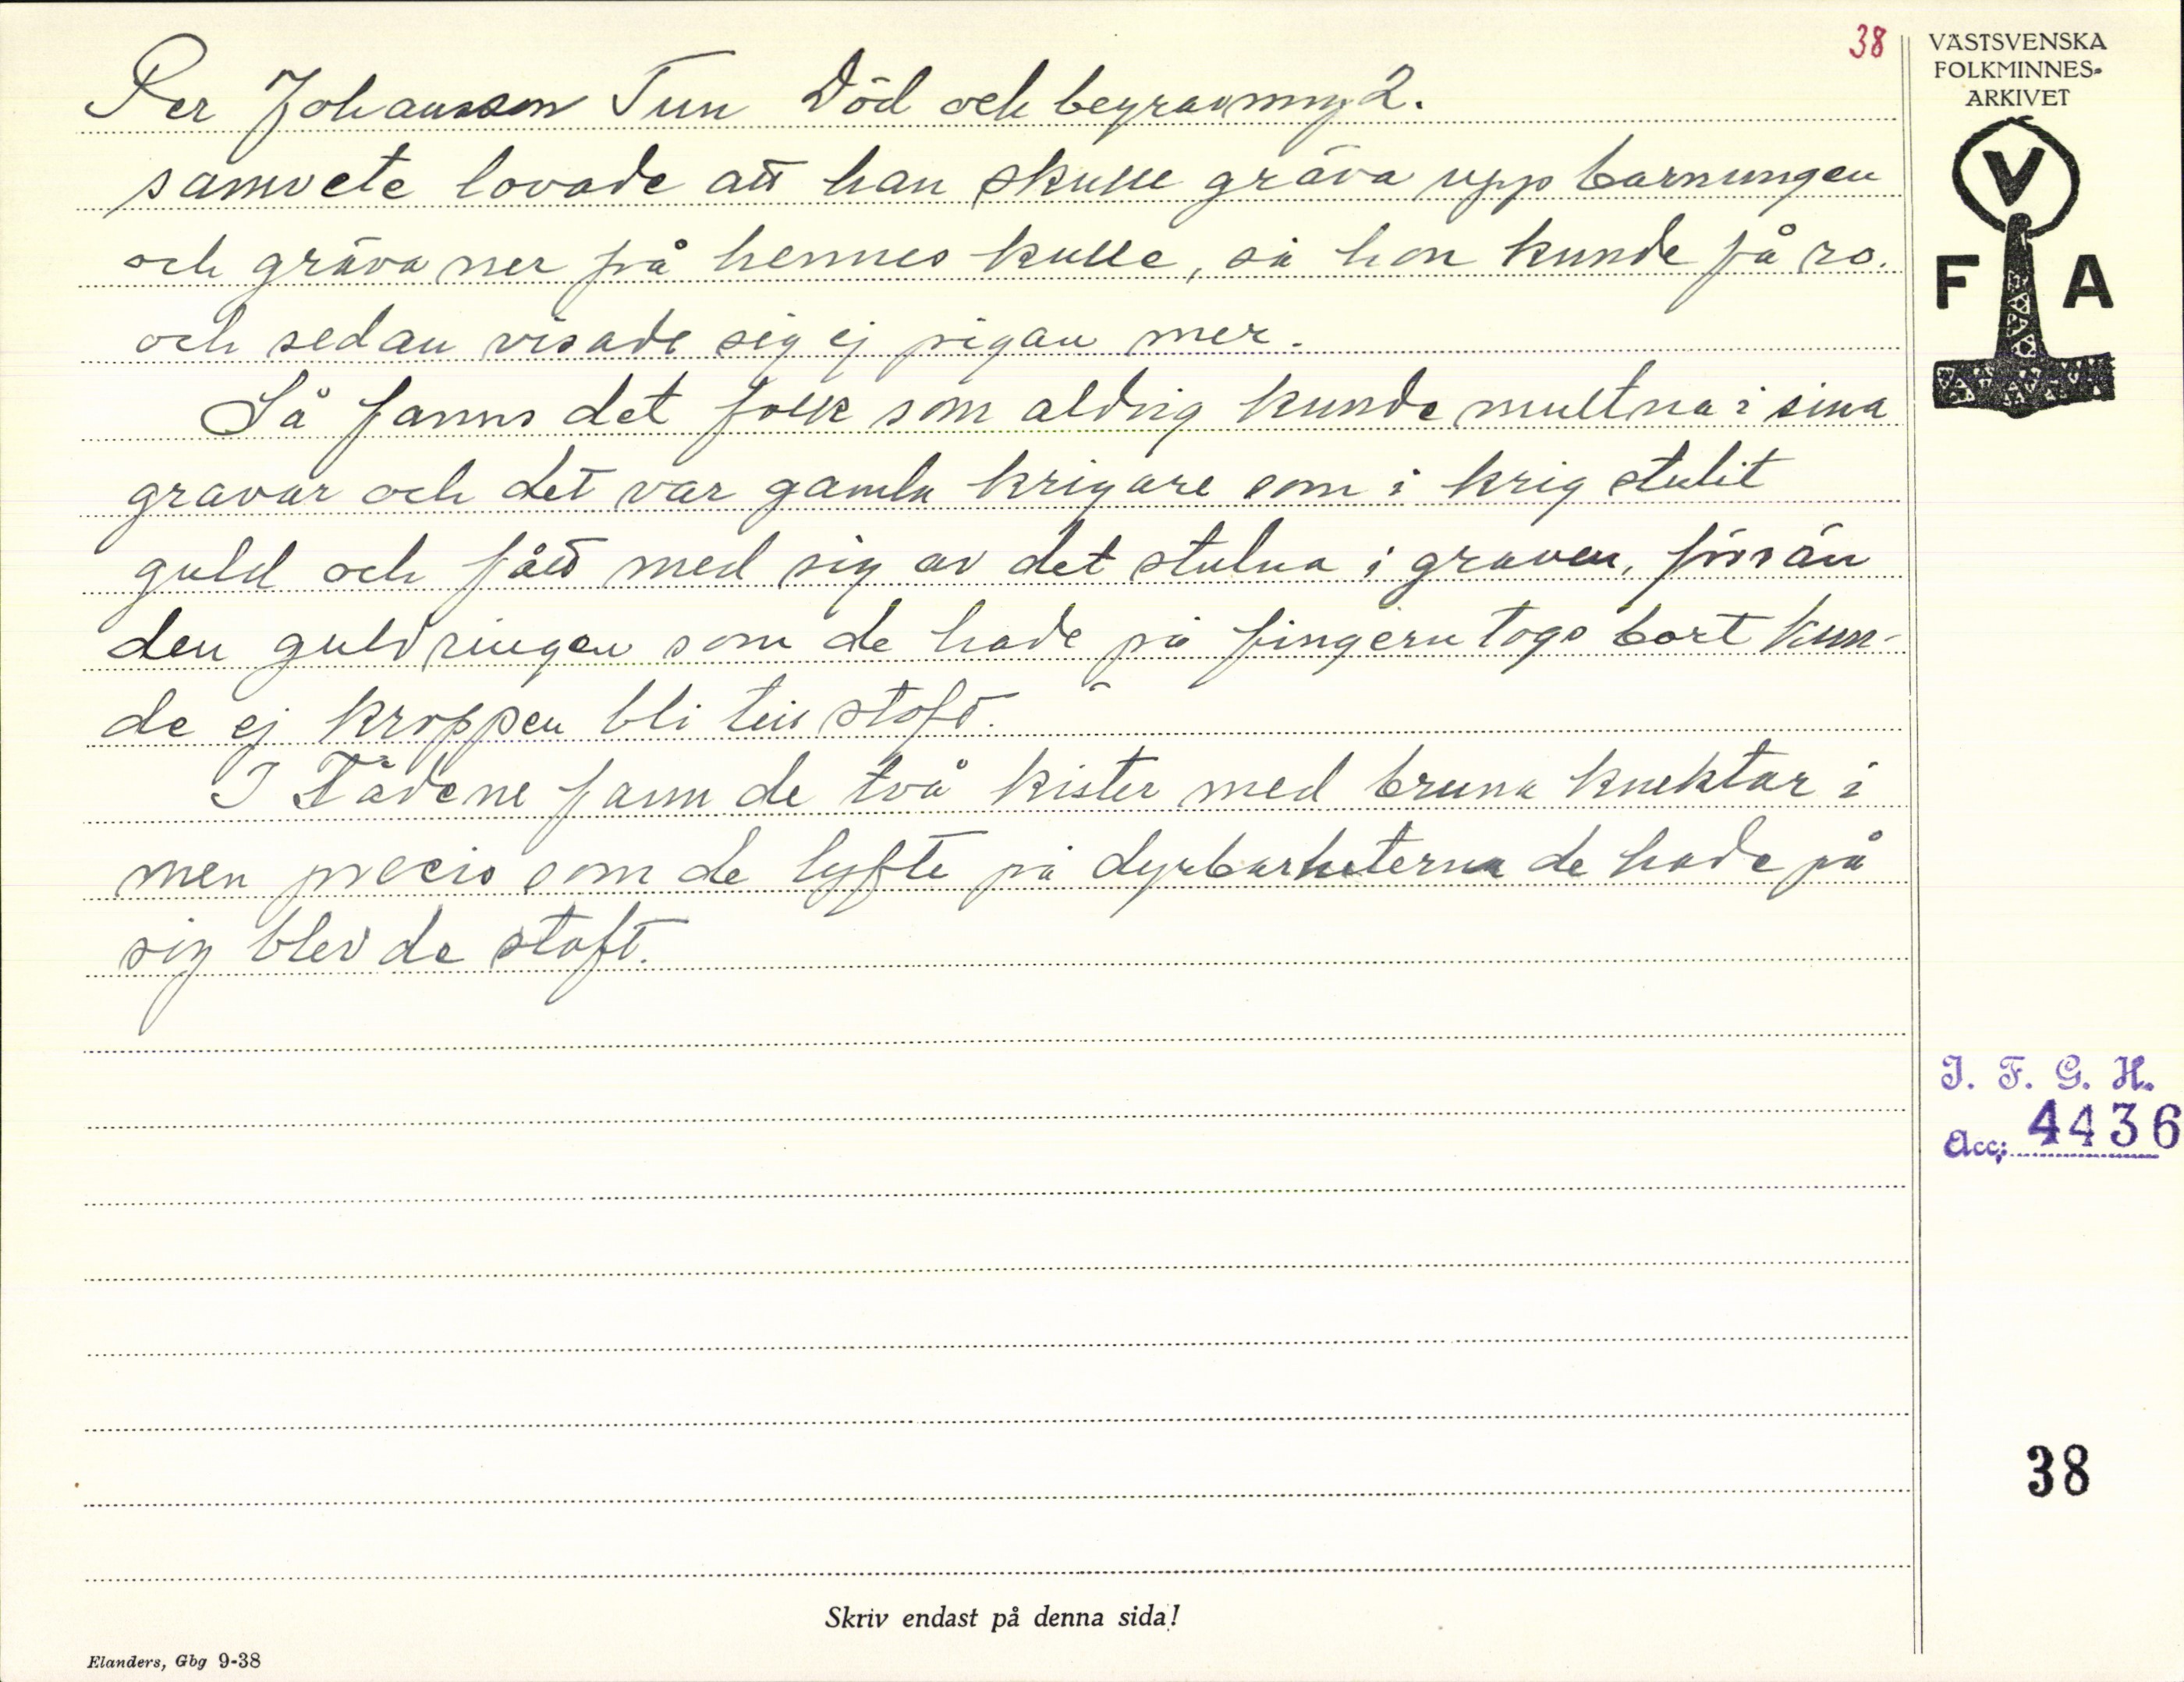 38
VÄSTSVENSKA
FOLKMINNES-
ARKIVET
V
F A
Per Johansson Tun Död och begravning 2.
samvete lovade att han skulle gräva upp barnungen
och gräva ner på hennes kulle, så hon kunde få ro.
och sedan visade sig ej pigan mer.
Så fanns det folk som aldrig kunde multna i sina
gravar och det var gamla krigare som i krig stulit
guld och fått med sig av det stulna i graven, förrän
den guldringen som de hade på fingern togs bort kun-
de ej kroppen bli till stoft.
I Tådene fann de två kister med bruna knektar i
men precis som de lyfte på dyrbarheterna de hade på
sig blev de stoft.
I. F. G. H.
Acc: 4436
38
Skriv endast på denna sida!
Elanders, Gbg 9-38